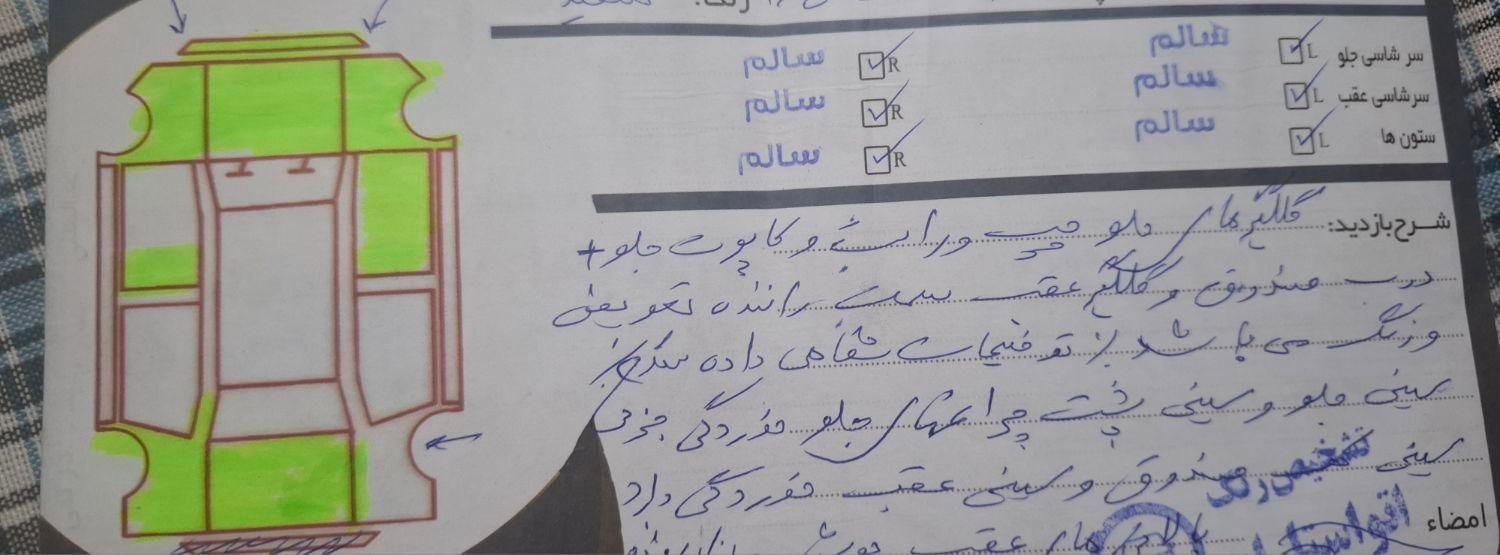 رنگ: سفید
سر شاسی جلو L سالم R سالم
سر شاسی عقب L سالم R سالم
ستون ها L سالم R سالم
شرح بازدید: گلگیرهای جلو چپ و راست و کاپوت جلو +
درب صندوق و گلگیر عقب سمت راننده تعویض
و رنگ می باشد توضیحات شفاهی داده شد
سینی جلو و سینی پشت چراغهای جلو خوردگی جزئی
سینی صندوق و سینی عقب خوردگی دارد
تشخیص رنگ
امضاء
عقب